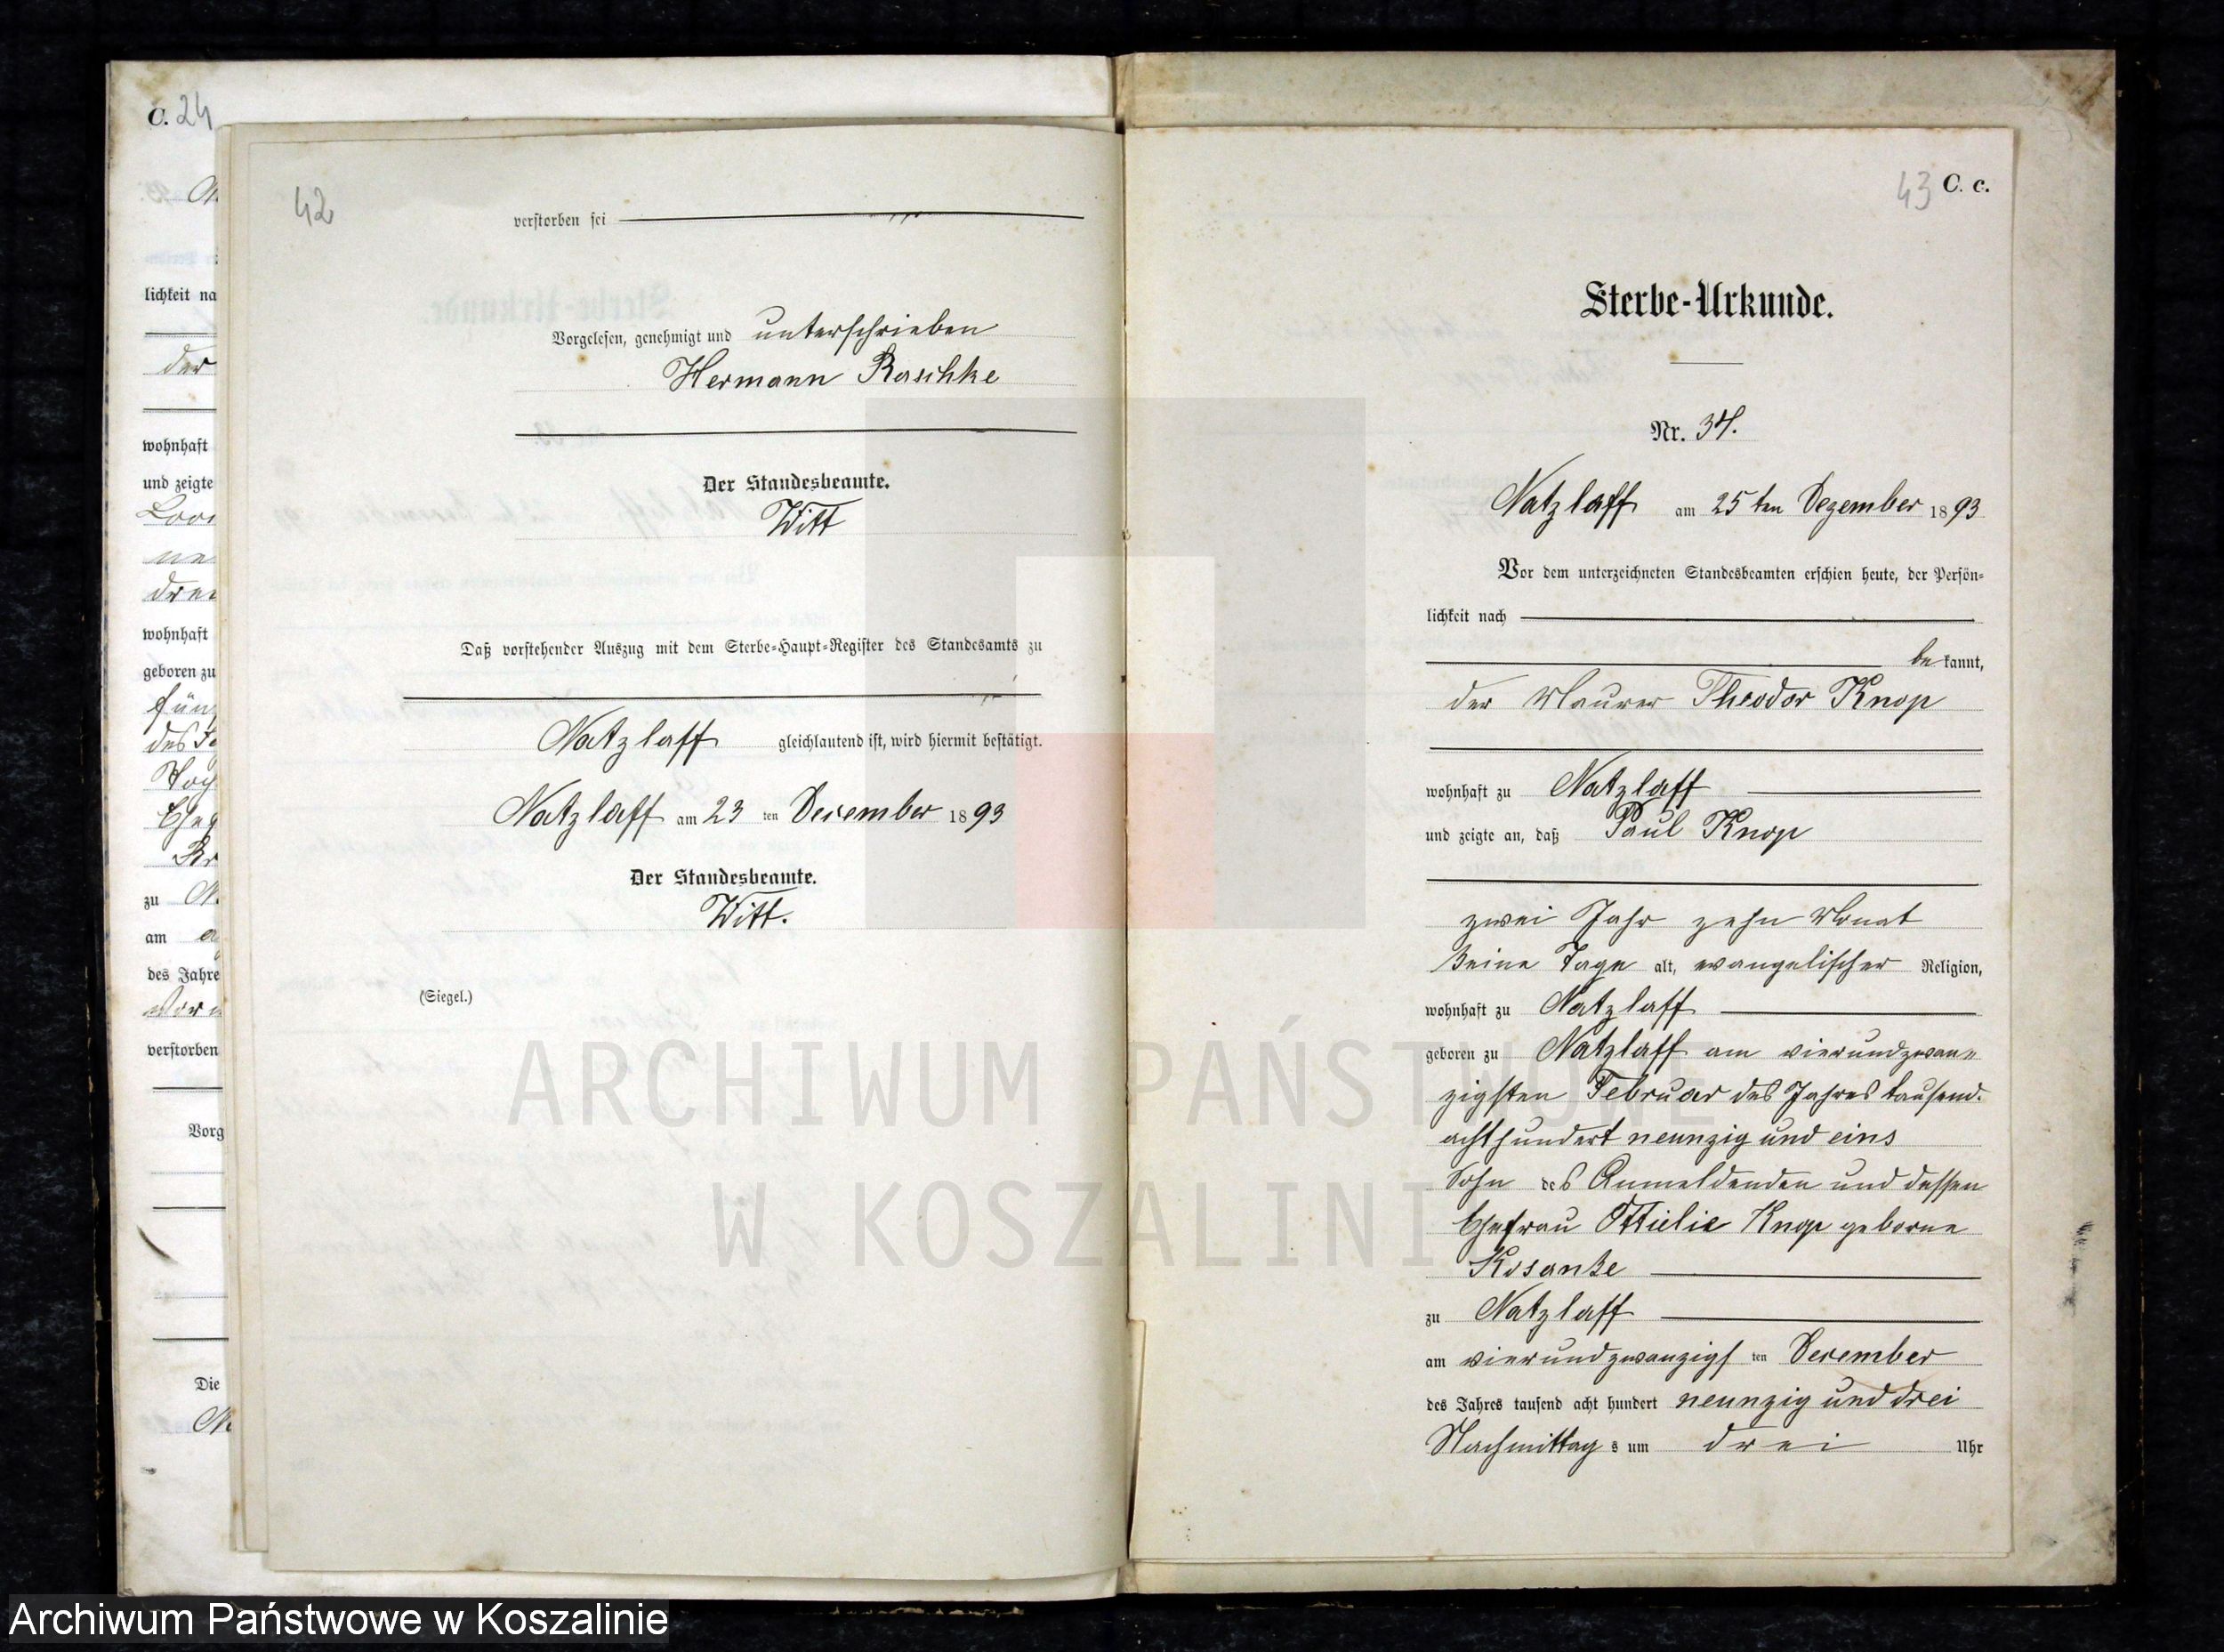 C. 24
lichkeit na
der
wohnhaft
und zeigte
wohnhaft
geboren zu
fün
des Ja
Toch
Ehe
zu
am
des Jahre
verstorben
Vorg
Die
42
verstorben sei
Vorgelesen, genehmigt und unterschrieben
Hermann Raschke
Der Standesbeamte.
Witt
Daß vorstehender Auszug mit dem Sterbe-Haupt-Register des Standesamts zu
Natzlaff gleichlautend ist, wird hiermit bestätigt.
Natzlaff am 23 ten December 1893
Der Standesbeamte.
Witt.
(Siegel.)
43 C. c.
Sterbe-Urkunde.
Nr. 34.
Natzlaff am 25 ten Dezember 1893
Vor dem unterzeichneten Standesbeamten erschien heute, der Persön-
lichkeit nach
be kannt,
der Maurer Theodor Knop
wohnhaft zu Natzlaff
und zeigte an, daß Paul Knop
zwei Jahr zehn Monat
keine Tage alt, evangelischer Religion,
wohnhaft zu Natzlaff
geboren zu Natzlaff am vierundzwan-
zigsten Februar des Jahres tausend-
achthundert neunzig und eins
Sohn des Anmeldenden und dessen
Ehefrau Ottielie Knop geborne
Kosanke
zu Natzlaff
am vierundzwanzigs ten December
des Jahres tausend acht hundert neunzig und drei
Nachmittag s um drei Uhr
ARCHIWUM PAŃSTWOWE
W KOSZALINIE
Archiwum Państwowe w Koszalinie